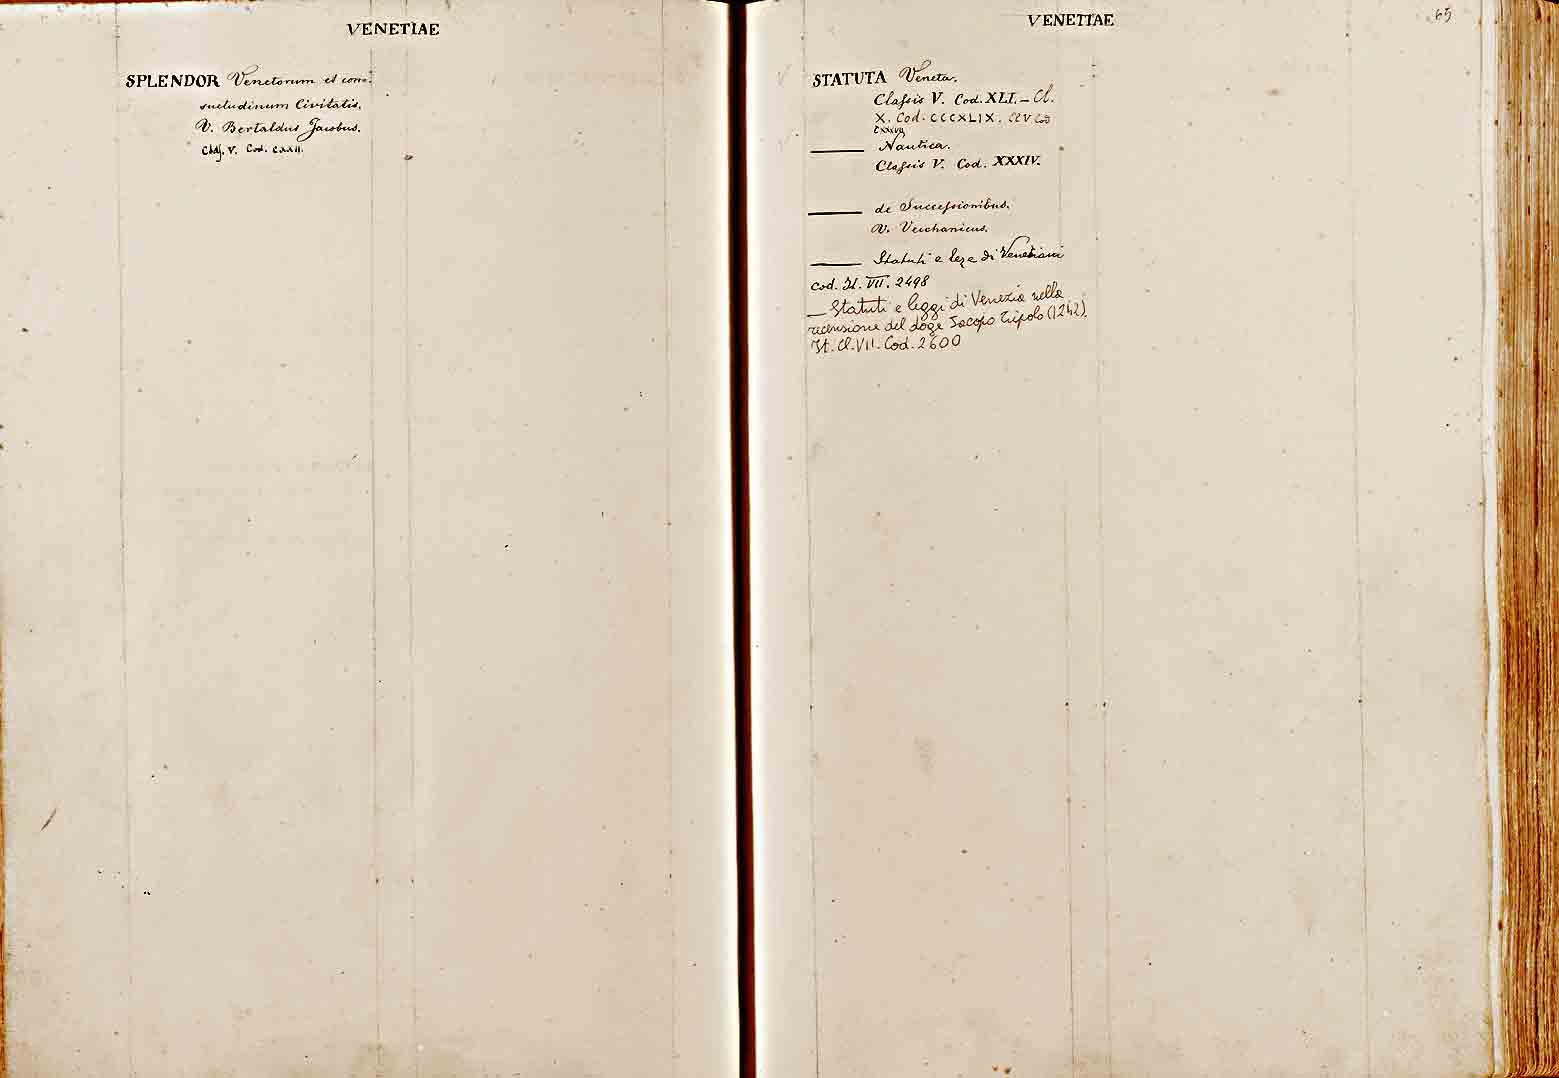 VENETIAE
SPLENDOR Venetorum et con-
suetudinum Civitatis.
V. Bertaldus Jacobus.
Class. V. Cod. CXXII.
VENETIAE
65
STATUTA Veneta.
Classis V. Cod. XLI. – Cl.
X. Cod. CCCXLIX. Cl V Cod
CXXXVII
—— Nautica.
Classis V. Cod. XXXIV.
—— de Successionibus.
V. Vechanicus.
—— Statuti e leze di Venetiani
Cod. It. VII. 2498
— Statuti e leggi di Venezia nella
recensione del doge Jacopo Tiepolo (1242).
It. Cl. VII. Cod. 2600